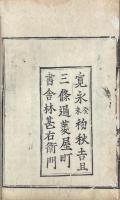 寛永癸未杪秋吉旦
三條通菱屋町
書舎林甚右衛門